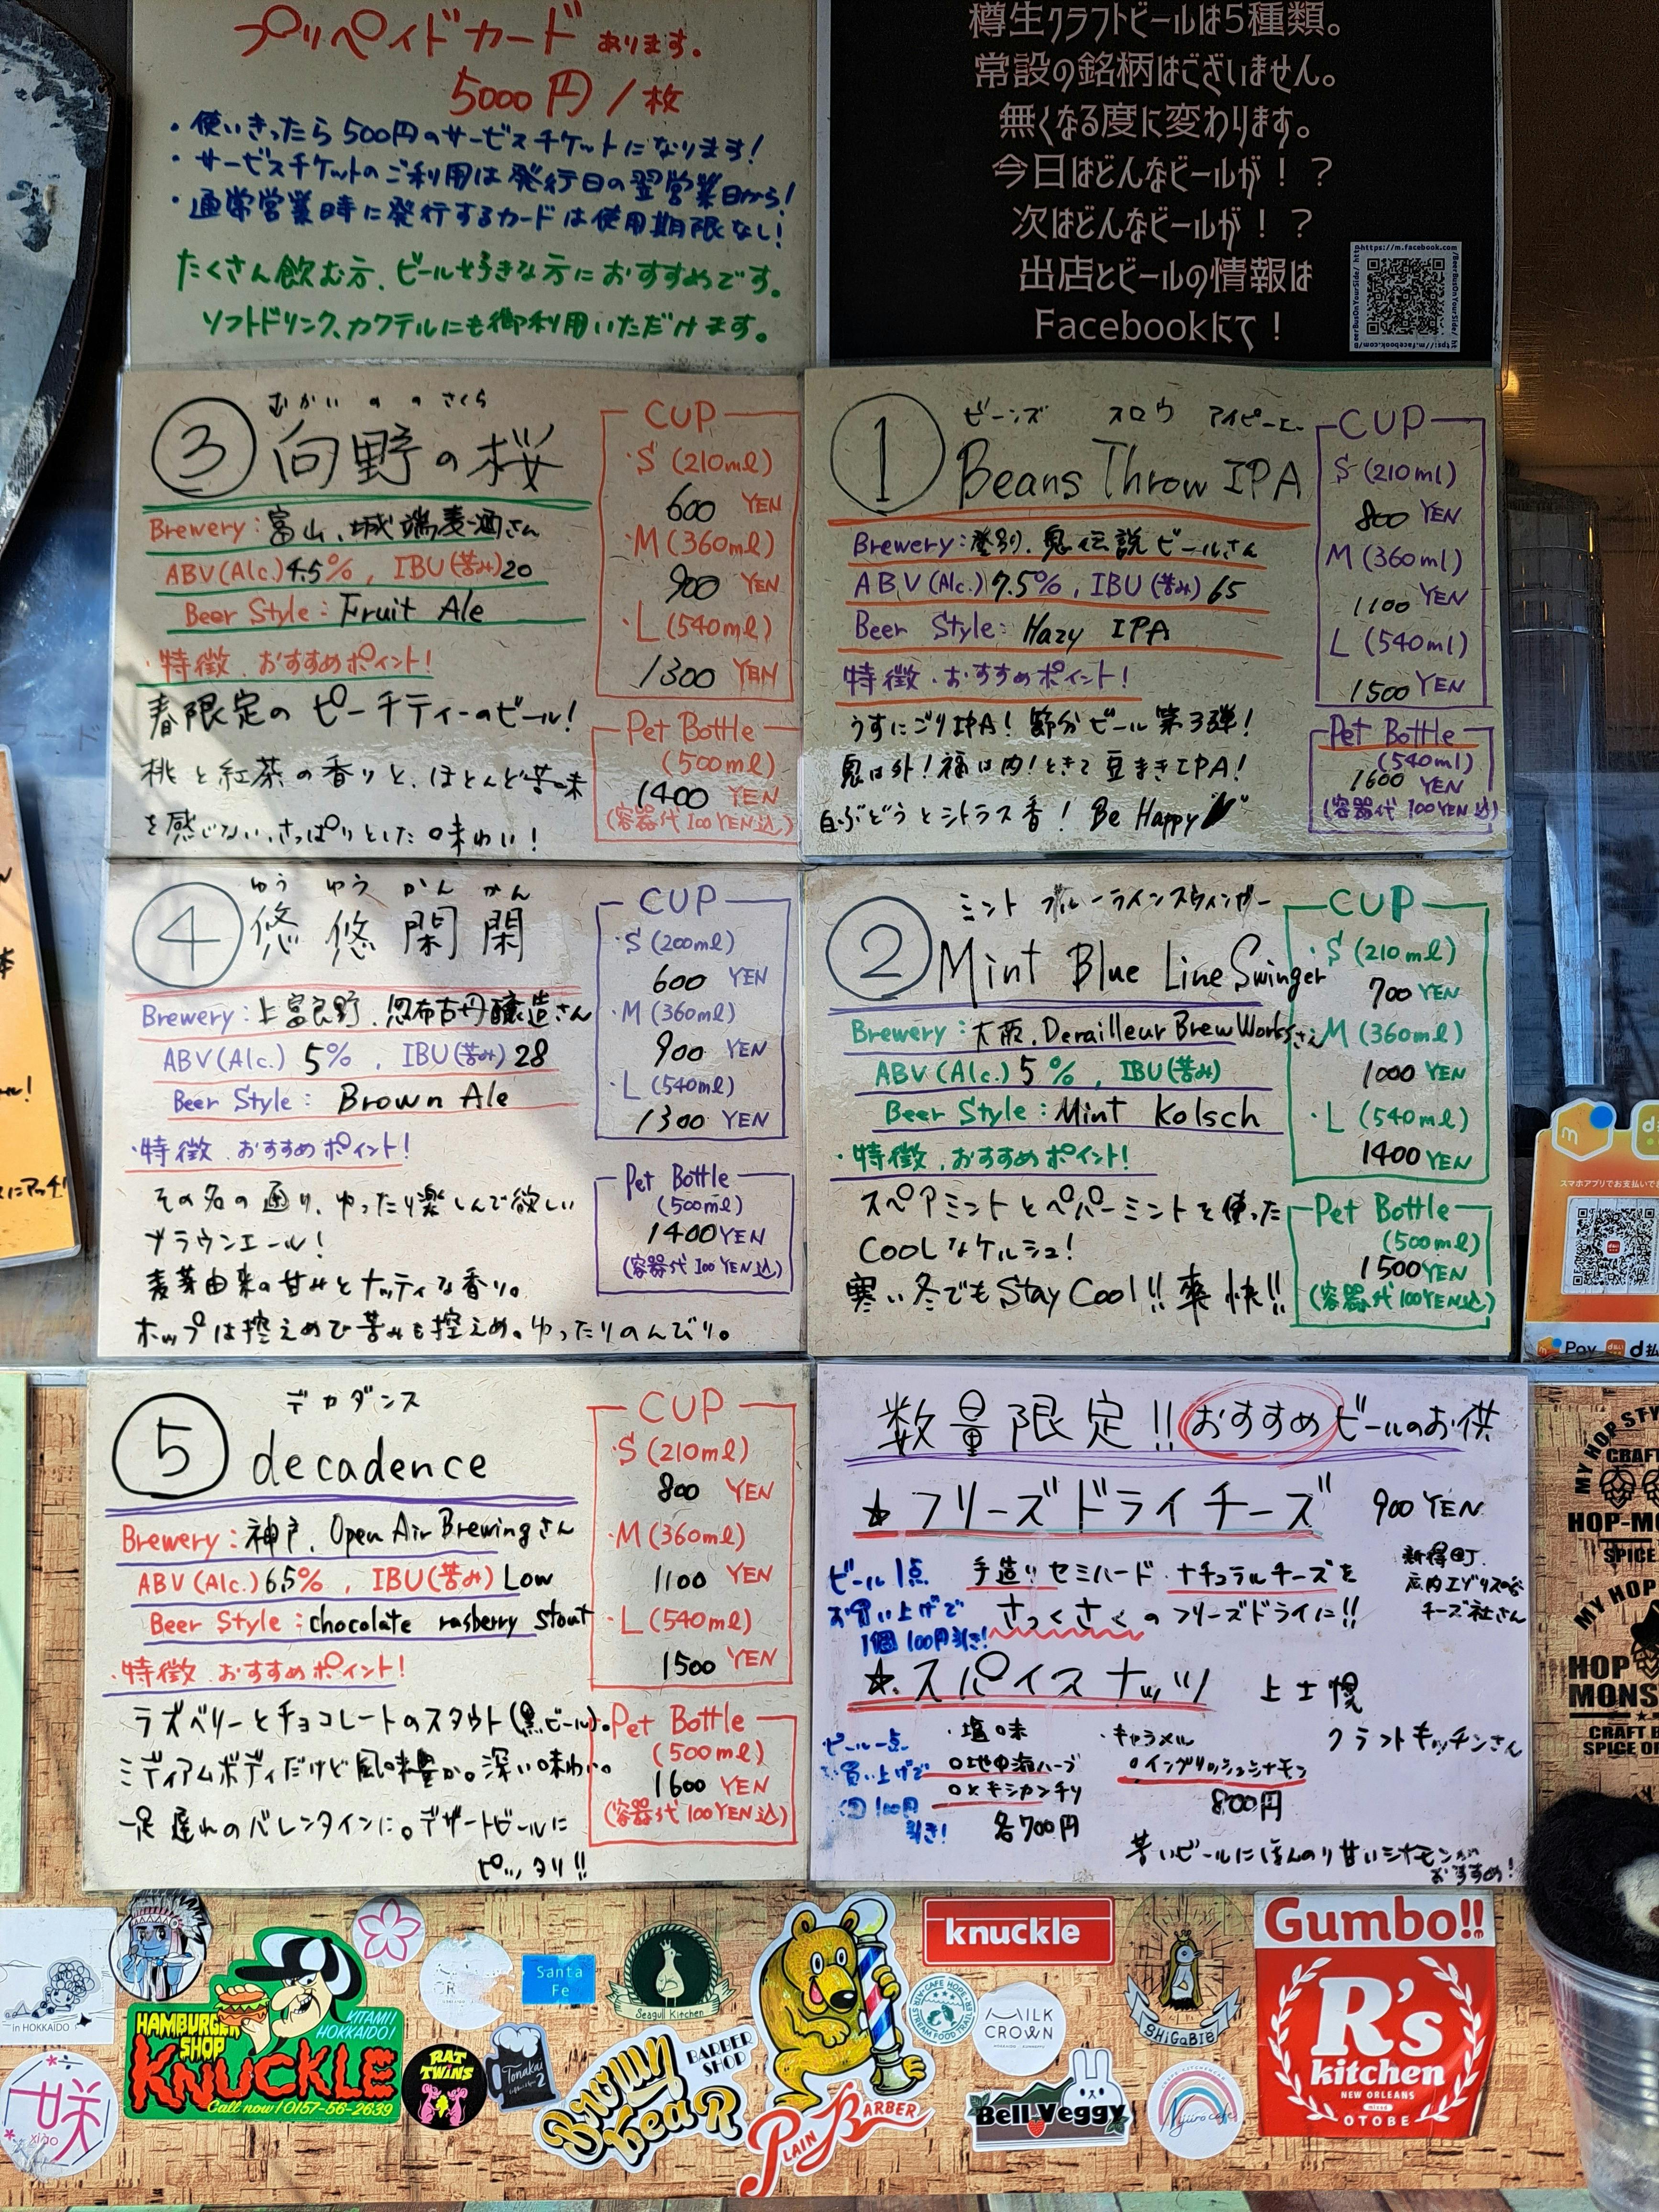 プリペイドカードあります。
5000円/枚
・使いきったら500円のサービスチケットになります!
・サービスチケットのご利用は発行日の翌営業日から!
・通常営業時に発行するカードは使用期限なし!
たくさん飲む方、ビール好きな方におすすめです。
ソフトドリンク、カクテルにも御利用いただけます。
樽生クラフトビールは5種類。
常設の銘柄はございません。
無くなる度に変わります。
今日はどんなビールが!?
次はどんなビールが!?
出店とビールの情報は
Facebookにて!
むかい の の さくら
③ 向野の桜
Brewery:富山、城端麦酒さん
ABV(Alc.)4.5%, IBU(苦み)20
Beer Style:Fruit Ale
・特徴、おすすめポイント!
春限定のピーチティーのビール!
桃と紅茶の香りと、ほとんど苦味
を感じない、さっぱりとした味わい!
CUP
・S (210ml)
600 YEN
・M (360ml)
900 YEN
・L (540ml)
1300 YEN
Pet Bottle
(500ml)
1400 YEN
(容器代100YEN込)
ビーンズ スロウ アイピーエー
① Beans Throw IPA
Brewery:登別、鬼伝説ビールさん
ABV(Alc.)7.5%, IBU(苦み)65
Beer Style:Hazy IPA
特徴、おすすめポイント!
うすにごりIPA! 節分ビール第3弾!
鬼は外!福は内!ときて豆まきIPA!
白ぶどうとシトラス香! Be Happy
CUP
S (210ml)
800 YEN
M (360ml)
1100 YEN
L (540ml)
1500 YEN
Pet Bottle
(540ml)
1600 YEN
(容器代100YEN込)
ゆう ゆう かん かん
④ 悠悠閑閑
Brewery:上富良野、忽布古丹醸造さん
ABV(Alc.) 5%, IBU(苦み)28
Beer Style: Brown Ale
・特徴、おすすめポイント!
その名の通り、ゆったり楽しんで欲しい
ブラウンエール!
麦芽由来の甘みとナッティな香り。
ホップは控えめで苦みも控えめ。ゆったりのんびり。
CUP
・S (200ml)
600 YEN
・M (360ml)
900 YEN
・L (540ml)
1300 YEN
Pet Bottle
(500ml)
1400YEN
(容器代100YEN込)
ミント ブルーラインスウィンガー
② Mint Blue Line Swinger
Brewery:大阪、Derailleur Brew Worksさん
ABV(Alc.) 5%, IBU(苦み)
Beer Style:Mint Kolsch
・特徴、おすすめポイント!
スペアミントとペパーミントを使った
COOLなケルシュ!
寒い冬でもStay Cool!!爽快!!
CUP
・S (210ml)
700 YEN
M (360ml)
1000 YEN
・L (540ml)
1400 YEN
Pet Bottle
(500ml)
1500YEN
(容器代100YEN込)
デカダンス
⑤ decadence
Brewery:神戸、Open Air Brewingさん
ABV(Alc.)6.5%, IBU(苦み)Low
Beer Style:chocolate rasberry stout
・特徴、おすすめポイント!
ラズベリーとチョコレートのスタウト(黒ビール)。
ミディアムボディだけど風味豊か。深い味わい。
一足遅れのバレンタインに。デザートビールに
ピッタリ!!
CUP
・S (210ml)
800 YEN
・M (360ml)
1100 YEN
・L (540ml)
1500 YEN
Pet Bottle
(500ml)
1600 YEN
(容器代100YEN込)
数量限定!!おすすめビールのお供
★フリーズドライチーズ 900 YEN
ビール1点
お買い上げで
1個100円引き!
手造りセミハード ナチュラルチーズを
さっくさくのフリーズドライに!!
新得町、
広内エゾリスの谷
チーズ社さん
★スパイスナッツ 上士幌
クラフトキッチンさん
ビール一点
お買い上げで
1個100円
引き!
・塩味
○地中海ハーブ
○メキシカンチリ
各700円
・キャラメル
○イングリッシュシナモン
800円
苦いビールにほんのり甘いシナモンが
おすすめ!
スマホアプリでお支払いでき
Pay d払
in HOKKAIDO
HAMBURGER
SHOP
KNUCKLE
KITAMI
HOKKAIDO!
Call now! 0157-56-2639
Santa
Fe
Seagull Kitchen
RAT
TWINS
Tonakai
2
Brown
bear
BARBER
SHOP
PLAIN BARBER
knuckle
MILK
CROWN
SHiGaBiB
Bell Veggy
Nijiiro cafe
Gumbo!!
R's
kitchen
NEW ORLEANS
mixed
OTOBE
xiao
MY HOP STY
CRAF
HOP-MO
SPICE
MY HOP
HOP
MONS
CRAFT B
SPICE O